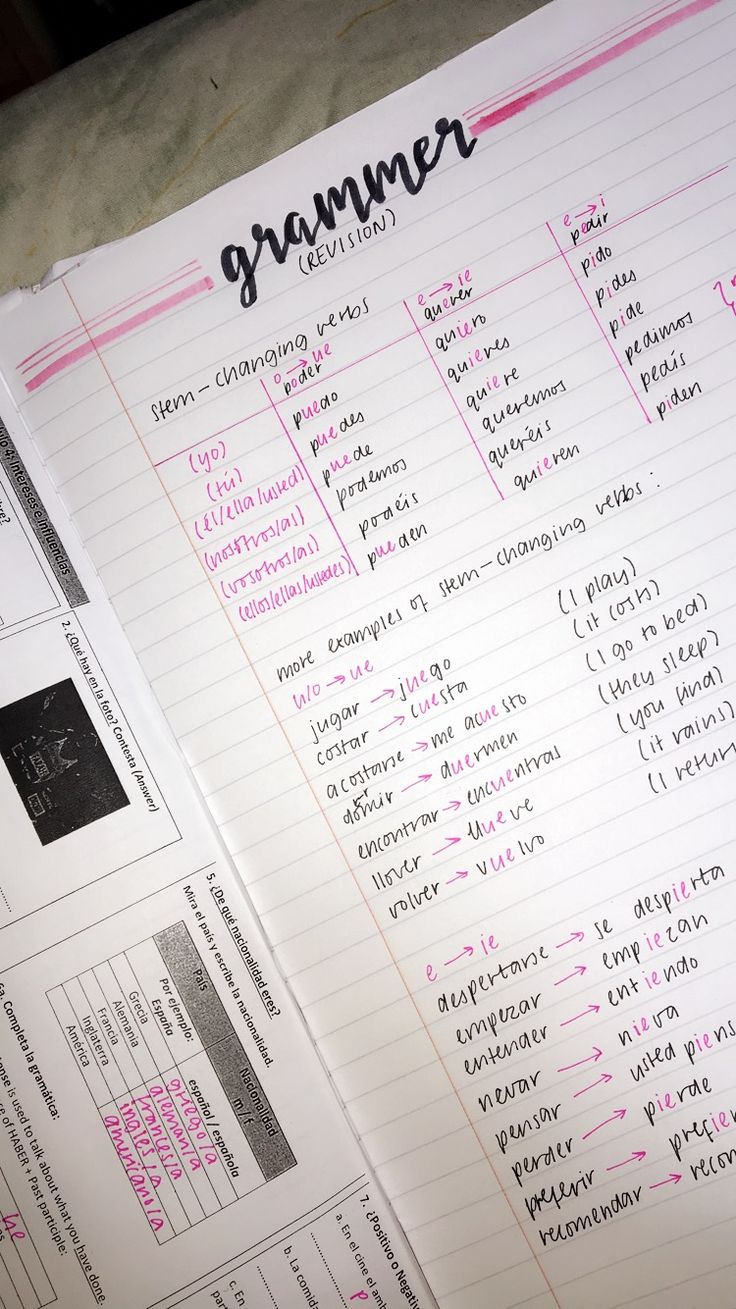 grammer
(REVISION)
stem-changing verbs
o → ue e → ie e → i
poder querer pedir
(yo) puedo quiero pido
(tú) puedes quieres pides
(él/ella/usted) puede quiere pide
(nosotros/as) podemos queremos pedimos
(vosotros/as) podéis queréis pedís
(ellos/ellas/ustedes) pueden quieren piden
more examples of stem-changing verbs:
u/o → ue
jugar → juego (I play)
costar → cuesta (it costs)
acostarse → me acuesto (I go to bed)
dormir → duermen (they sleep)
encontrar → encuentras (you find)
llover → llueve (it rains)
volver → vuelvo (I return
e → ie
despertarse → se despierta
empezar → empiezan
entender → entiendo
nevar → nieva
pensar → usted piens
perder → pierde
preferir → prefier
recomendar → recom
ulo 4: Intereses e influencias
2. ¿Qué hay en la foto? Contesta (Answer)
5. ¿De qué nacionalidad eres?
Mira el país y escribe la nacionalidad.
País Nacionalidad m / f
Por ejemplo:
España español / española
Grecia griego/a
Alemania aleman/a
Francia frances/a
Inglaterra ingles/a
América americano/a
6a. Completa la gramática:
ense is used to talk about what you have done.
se of HABER + Past participle:
he
7. ¿Positivo o Negativ
a. En el cine el amb
P
b. La comid
c. En